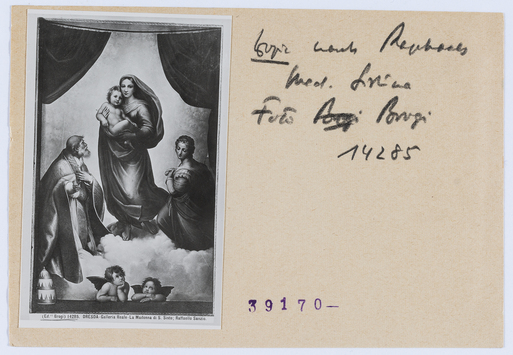 Kopie nach Raphaels
Mad. Sistina
Foto Brogi
14285
39170-
(Ed.ne Brogi) 14285. DRESDA. Galleria Reale. La Madonna di S. Sisto. Raffaello Sanzio.